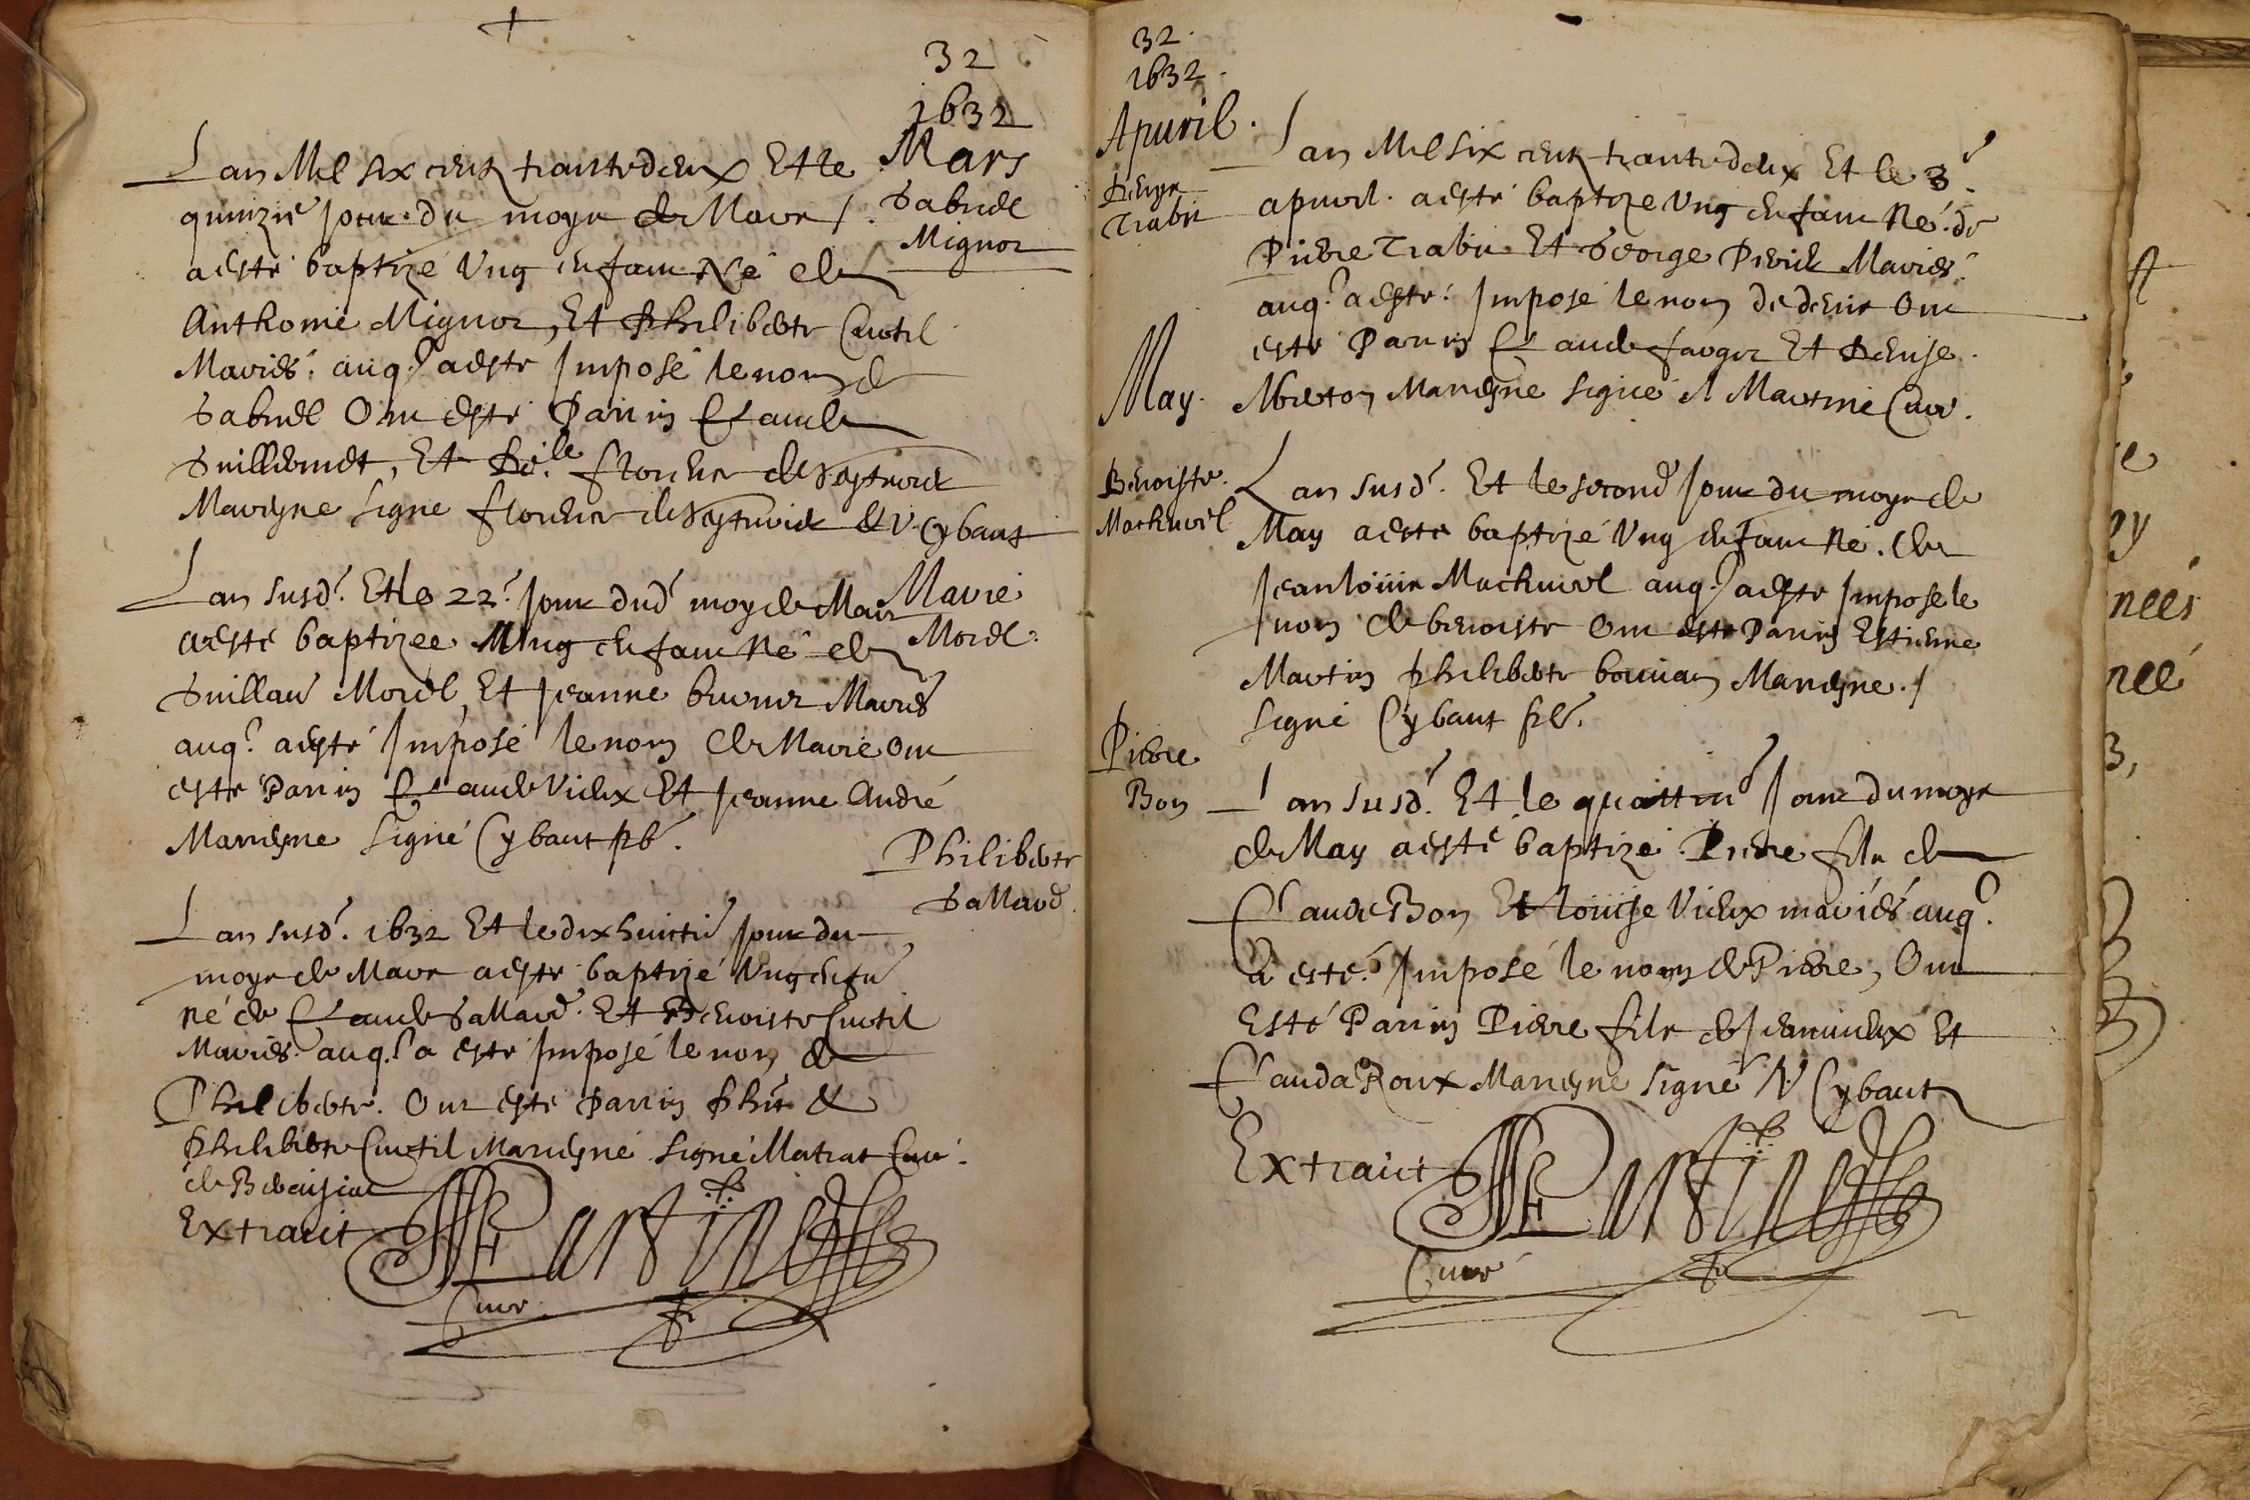 32
1632
Mars
Gabriel
Mignot
Lan Mil six centz trante deux Et le
quinzie Jour du moys de Mars /.
a esté baptizé Ung enfant Né de
Anthoine Mignot, Et Philiberte Curtil
Mariés. auq.l a este Imposé le nom de
Gabriel Ont esté Parrin Claude
Guillermet, Et florence de Seyturier
Mareyne Signe florence de Seyturier & V. Cybaut
Marie
Morel
Lan susd. Et le 22.e Jour dud moys de Mars
a esté baptizee Ung enfant Né de
Guillau Morel, Et Jeanne Mariés
auq.l a esté Imposé le nom de Marie Ont
este Parrin Claude Vieux Et Jeanne André
Mareyne Signé Cybaut pb.
Philiberte
Gallard
Lan susd. 1632 Et le dix huictie Jour du
moys de Mars a este baptizé Ung enfa
né de Claude Gallard. Et Benoiste Curtil
Mariés. auq.l a esté Imposé le nom de
Philiberte. Ont esté Parrin &
Philiberte Curtil Mareyne Signé Matrat Curé.
de
Extraict Martine
Curé
32.
1632.
Apvril.
Denyse
Trabu
Lan Mil Six centz trante deux Et le 3.e
apvril. a esté baptize Ung enfant Né. de
Pierre Trabu Et George Mariés.
auq.l a esté. Imposé le nom de denise Ont
esté Parrin Claude Et Denise
Mareyne Signé Martine Curé.
May.
Benoiste
Lan susd. Et le second Jour du moys de
May a este baptizé Ung enfant Né. de
Jean loüis auq.l a esté Imposé le
nom de benoiste Ont este Parrin Estienne
Martin Philiberte Mareyne./
Signé Cybaut pb.
Pierre
Bon
Lan susd. Et le quattrie Jour du moys
de May a esté baptizé. Pierre filz de
Claude Bon Et loüise Vieux mariés auq.l
a esté. Imposé le nom de Pierre, Ont
Esté Parrin Pierre filz de Jean vieux Et
Clauda Roux Mareyne Signé V Cybaut
Extraict Martine
Curé